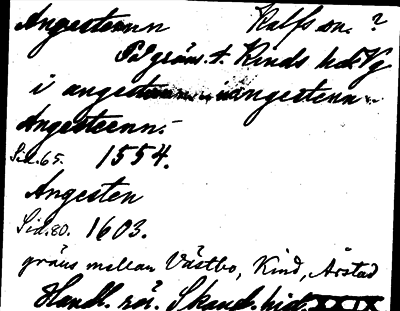 Angestenn Kalfs sn. ?
På gräns. t. Kinds hd Vg
i angestenn angestenn
Angesteenn.
Sid. 65. 1554.
Angesten
Sid. 80. 1603.
gräns mellan Västbo, Kind, Årstad
Handl. rör. Skand. hist. XXIX